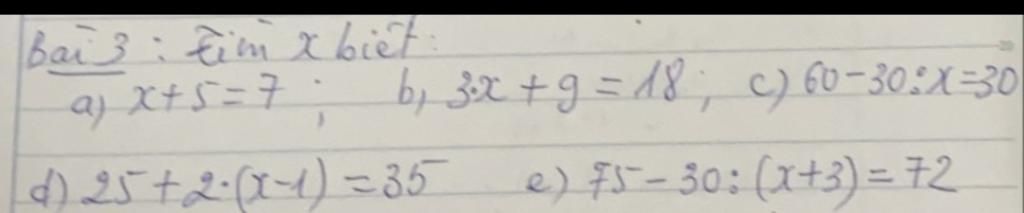 Bài 3 : tìm x biết :
a) x+5=7 ; b, 3.x+9=18 ; c) 60-30:x=30
d) 25+2.(x-1)=35 e) 75-30:(x+3)=72